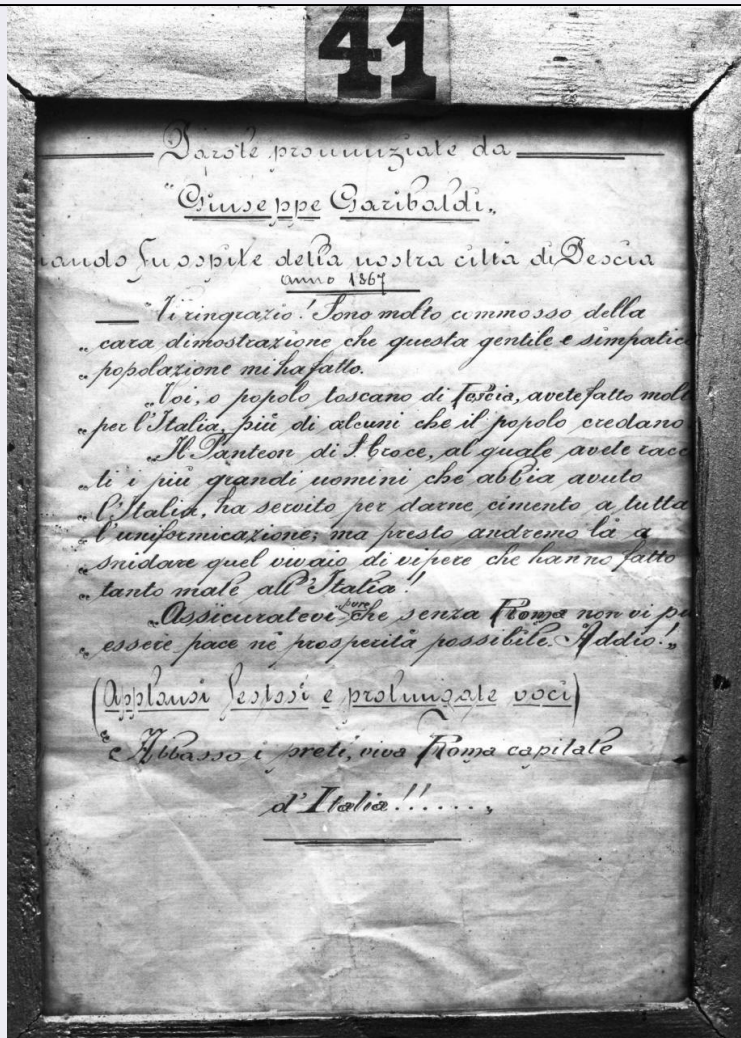 41
Parole pronunziate da
"Giuseppe Garibaldi„
uando fu ospite della nostra città di Pescia
anno 1867
— "Vi ringrazio! Sono molto commosso della
„ cara dimostrazione che questa gentile e simpatica
„ popolazione mi ha fatto.
„Voi, o popolo toscano di Pescia, avete fatto molt
„ per l'Italia, più di alcuni che il popolo credano.
„Il Panteon di S. Croce, al quale avete racc
„ ti i più grandi uomini che abbia avuto
„ l'Italia, ha servito per darne cimento a tutta
„ l'uniformicazione; ma presto andremo là a
„ snidare quel vivaio di vipere che hanno fatto
„ tanto male all'Italia!
„Assicuratevi pure che senza Roma non vi pu
„ essere pace nè prosperità possibile. Addio!„
(Applausi festosi e prolungate voci)
"Abbasso i preti, viva Roma capitale
d'Italia!!......„